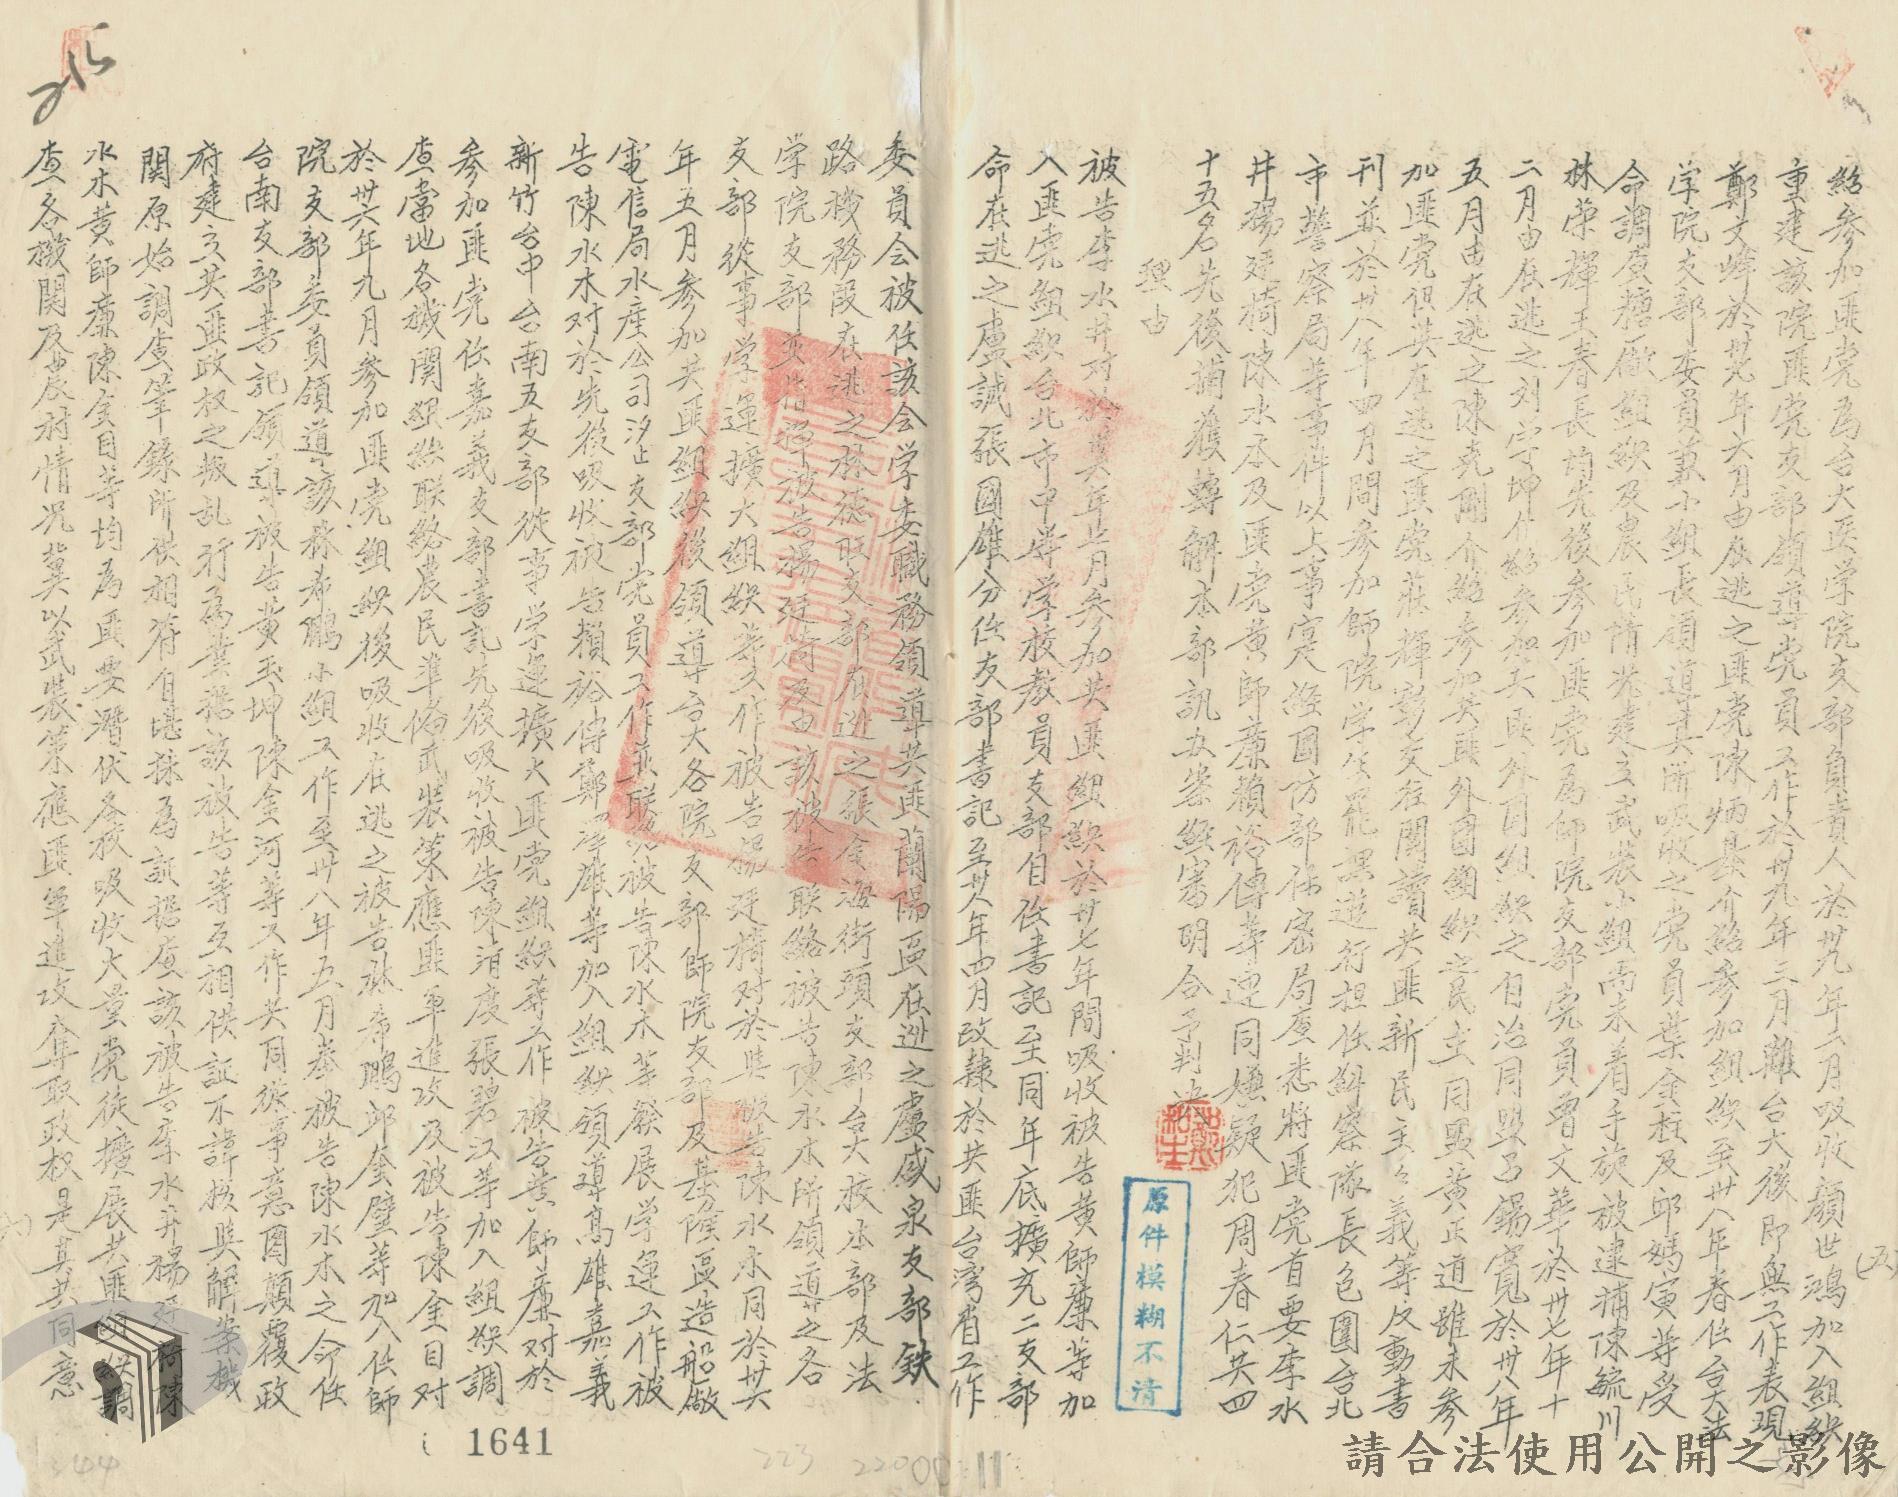 (五)
紹參加匪党為台大医学院支部負責人於卅九年二月吸收顏世鴻加入組織
重建該院匪党支部領導党員工作於卅九年三月離台大後即無工作表現
鄭文峰於卅九年六月由在逃之匪党陳炳基介紹參加組織至卅八年春任台大法
学院支部委員兼小組長領道其所吸收之党員葉金柱及邱媽寅等受
命調查糖廠組織及農民情況建立武裝小組尚未着手旋被逮捕陳毓川
林榮輝王春長均先後參加匪党為師院支部党員曾文華於卅七年十
二月由在逃之刘宇坤介紹參加共匪外囲組織之自治同盟呂錫寬於卅八年
五月由在逃之陳克剛介紹參加共匪外囲組織之民主同盟黃正道雖未參
加匪党但共在逃之匪党莊輝彰交往閱讀共匪新民主々義等反動書
刊並於卅八年四月間參加師院学生罷課遊行担任糾察隊長包圍台北
市警察局等事件以上事実經國防部保密局查悉將匪党首要李水
井楊廷椅陳水木及匪党黃師廉賴裕傳等連同嫌疑犯周春仁共四
十五名先後捕獲轉解本部訊办案經審明合予判決
理由
被告李水井对於其年七月參加共匪組織於卅七年間吸收被告黃師廉等加
入匪党組織台北市中等学校教員支部自任書記至同年底擴充二支部
命在逃之盧誠張國雄分任支部書記至卅八年四月改隸於共匪台湾省工作
委員会被任該会学委職務領導共匪蘭陽區在逃之盧盛泉支部鉄
路機務段在逃之林德旺支部在逃之張金海街頭支部台大校本部及法
学院支部並指揮被告楊廷椅及由該被告联絡被告陳水木所領導之各
支部從事学運擴大組織等工作被告楊廷椅对於與被告陳水木同於卅六
年五月參加共匪組織後領導台大各院支部師院支部及基隆區造船廠
電信局水產公司汐止支部党員工作並联絡被告陳水木等發展学運工作被
告陳水木对於先後吸收被告賴裕傳鄭澤雄等加入組織領導高雄嘉義
新竹台中台南五支部從事学運擴大匪党組織等工作被告黃師廉对於
參加匪党任嘉義支部書記先後吸收被告陳清度張碧江等加入組織調
查當地各機関組織联絡農民準備武裝策應匪軍進攻及被告陳金目对
於卅六年九月參加匪党組織後吸收在逃之被告林希鵬邱金璧等加入任師
院支部委員領道該林希鵬小組工作至卅八年五月奉被告陳水木之命任
台南支部書記領導被告黃玉坤陳金河等工作共同從事意圖顛覆政
府建立共匪政权之叛乱行為業据該被告等互相供証不諱核與解案機
関原始調查筆錄所供相符自堪採為証据查該被告李水井楊廷椅陳
水木黃師廉陳金目等均為匪要潛伏各校吸收大量党徒擴展共匪組織調
查各機関及農村情況冀以武裝策應匪軍進攻奪取政权是其共同意
原件模糊不清
1641
223
220
344
請合法使用公開之影像